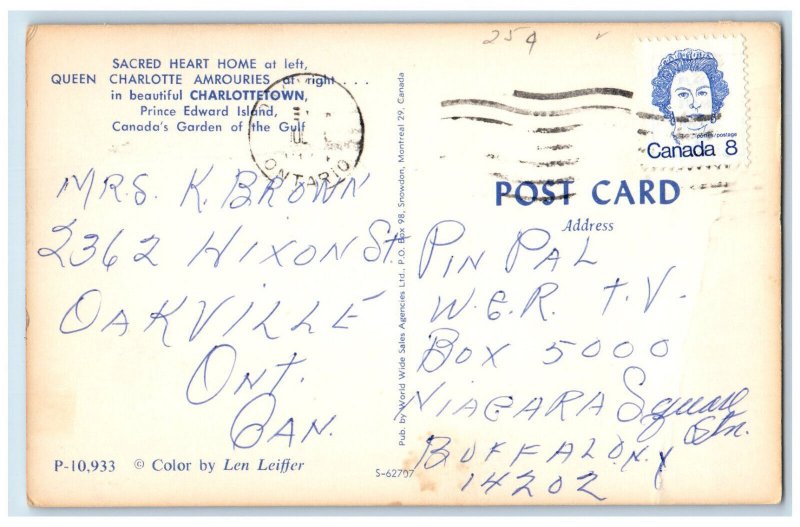 SACRED HEART HOME at left,
QUEEN CHARLOTTE AMROURIES at right . . .
in beautiful CHARLOTTETOWN,
Prince Edward Island,
Canada's Garden of the Gulf
ONTARIO
MRS. K. BROWN
2362 HIXON St.
OAKVILLE
ONT.
CAN.
P-10,933 © Color by Len Leiffer
Pub. by World Wide Sales Agencies Ltd., P.O. Box 98, Snowdon, Montreal 29, Canada
S-62707
25¢
postes/postage
Canada 8
POST CARD
Address
PIN PAL
W.G.R. T.V.
BOX 5000
NIAGARA Square
Stn.
BUFFALO N.Y
14202